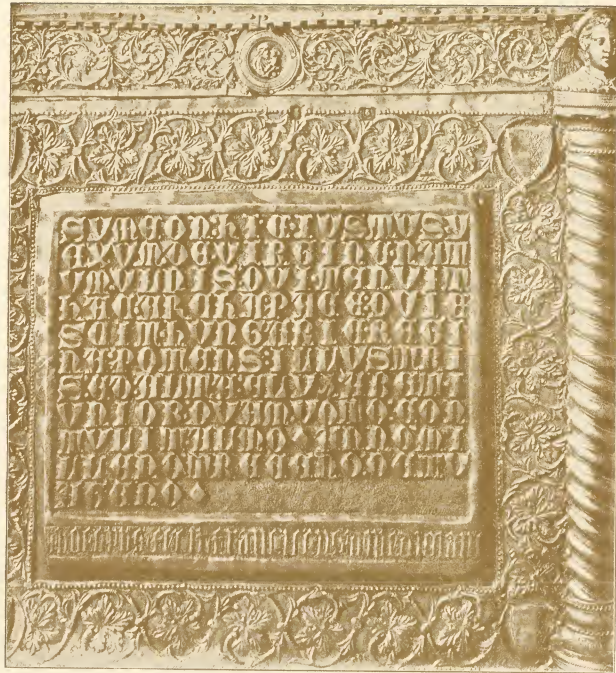 SYMEON:HIC.IVSTVS.Y
EXVM.DE.VIRGINE.NAT
VM.VLNIS.QVI.TENVIT
HAC.ARCHA.PACE.QVIE
SCIT.HVNGARIE.REGI
NA.POTENS:ILLVSTRI
S.ET.ALTA.ELYZABET.I
VNIOR.QVAM.VOTO.CON
TVLIT.ALMO.ANNO.MI
LLENO.TRECENO.OCTV
AGENO